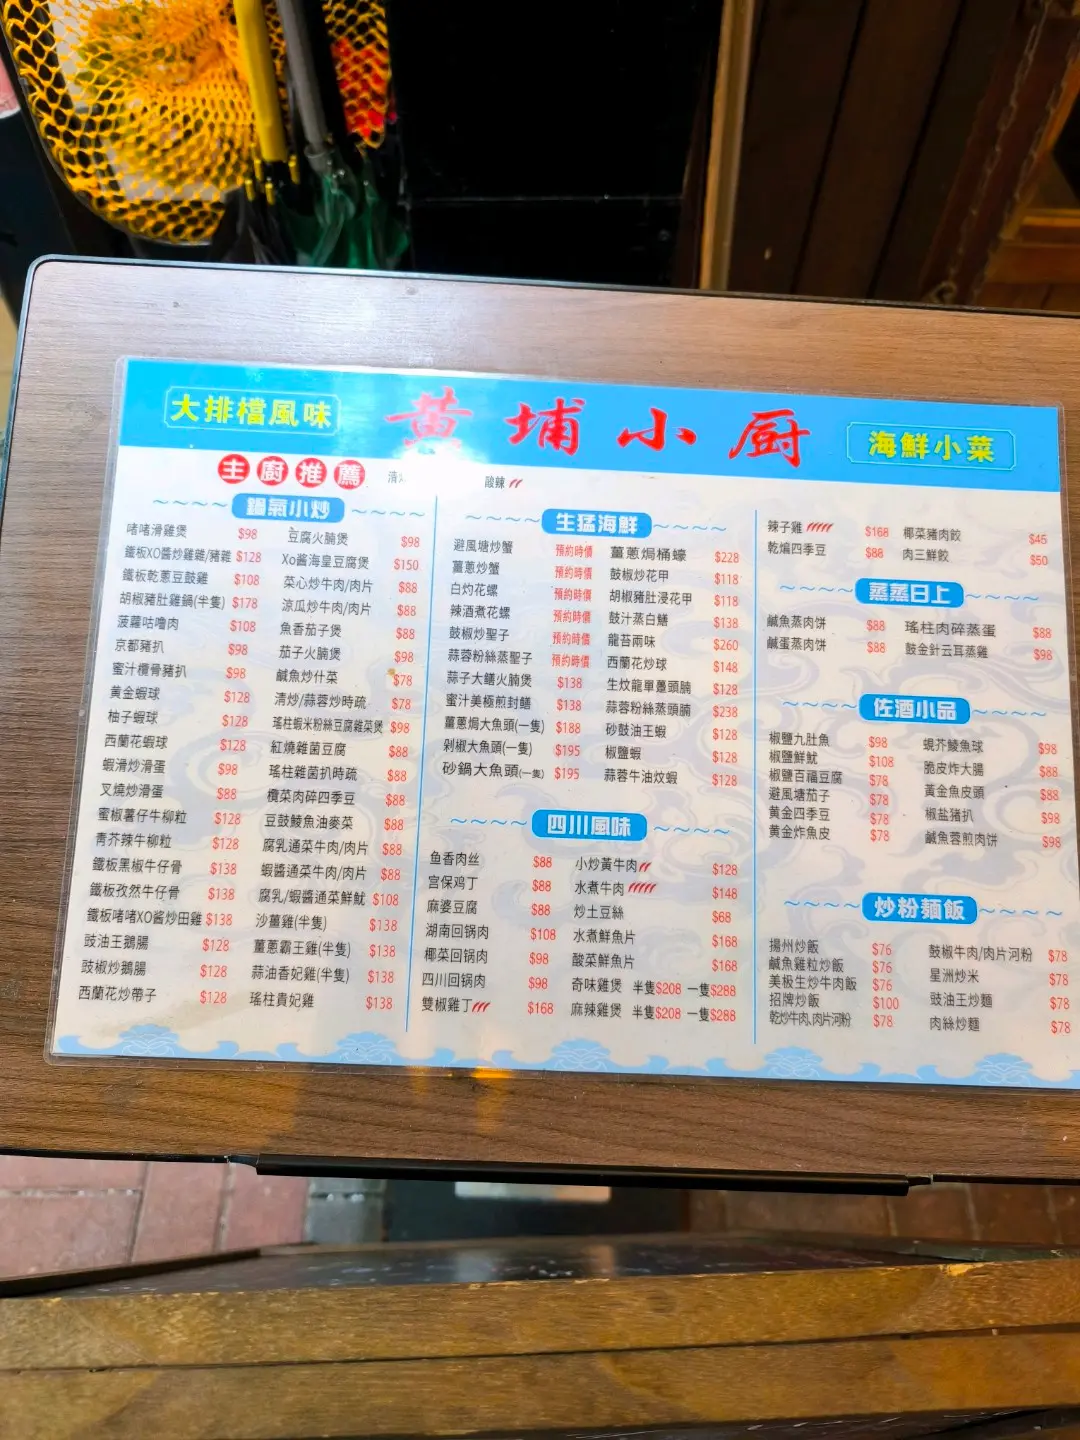 大排檔風味
黃埔小厨
海鮮小菜
主廚推薦
酸辣
鍋氣小炒
啫啫滑雞煲 $98
鐵板XO醬炒雞雜/豬雜 $128
鐵板乾蔥豆鼓雞 $108
胡椒豬肚雞鍋(半隻) $178
菠蘿咕嚕肉 $108
京都豬扒 $98
蜜汁欖骨豬扒 $98
黄金蝦球 $128
柚子蝦球 $128
西蘭花蝦球 $128
蝦滑炒滑蛋 $98
叉燒炒滑蛋 $88
蜜椒薯仔牛柳粒 $128
青芥辣牛柳粒 $128
鐵板黑椒牛仔骨 $138
鐵板孜然牛仔骨 $138
鐵板啫啫XO酱炒田雞 $138
豉油王鵝腸 $128
豉椒炒鵝腸 $128
西蘭花炒帶子 $128
豆腐火腩煲 $98
Xo酱海皇豆腐煲 $150
菜心炒牛肉/肉片 $88
涼瓜炒牛肉/肉片 $88
魚香茄子煲 $88
茄子火腩煲 $98
鹹魚炒什菜 $78
清炒/蒜蓉炒時疏 $78
瑤柱蝦米粉絲豆腐雜菜煲 $98
紅燒雜菌豆腐 $88
瑤柱雜菌扒時疏 $88
欖菜肉碎四季豆 $88
豆鼓鯪魚油麥菜 $88
腐乳通菜牛肉/肉片 $88
蝦醬通菜牛肉/肉片 $88
腐乳/蝦醬通菜鮮魷 $108
沙薑雞(半隻) $138
薑蔥霸王雞(半隻) $138
蒜油香妃雞(半隻) $138
瑤柱貴妃雞 $138
生猛海鮮
避風塘炒蟹 預約時價
薑蔥炒蟹 預約時價
白灼花螺 預約時價
辣酒煮花螺 預約時價
鼓椒炒聖子 預約時價
蒜蓉粉絲蒸聖子 預約時價
蒜子大鱔火腩煲 $138
蜜汁美極煎封鱔 $138
薑蔥焗大魚頭(一隻) $188
剁椒大魚頭(一隻) $195
砂鍋大魚頭(一隻) $195
薑蔥焗桶蠔 $228
鼓椒炒花甲 $118
胡椒豬肚浸花甲 $118
鼓汁蒸白鱔 $138
龍苔兩味 $260
西蘭花炒球 $148
生炆龍單躉頭腩 $128
蒜蓉粉絲蒸頭腩 $238
砂鼓油王蝦 $128
椒鹽蝦 $128
蒜蓉牛油炆蝦 $128
四川風味
鱼香肉丝 $88
宫保鸡丁 $88
麻婆豆腐 $88
湖南回锅肉 $108
椰菜回锅肉 $98
四川回锅肉 $98
雙椒雞丁 $168
小炒黃牛肉 $128
水煮牛肉 $148
炒土豆絲 $68
水煮鮮魚片 $168
酸菜鮮魚片 $168
奇味雞煲 半隻$208 一隻$288
麻辣雞煲 半隻$208 一隻$288
辣子雞 $168
乾煸四季豆 $88
椰菜豬肉餃 $45
肉三鮮餃 $50
蒸蒸日上
鹹魚蒸肉饼 $88
鹹蛋蒸肉饼 $88
瑤柱肉碎蒸蛋 $88
鼓金針云耳蒸雞 $98
佐酒小品
椒鹽九肚魚 $98
椒鹽鮮魷 $108
椒鹽百福豆腐 $78
避風塘茄子 $78
黄金四季豆 $78
黄金炸魚皮 $78
蜆芥鯪魚球 $98
脆皮炸大腸 $88
黃金魚皮頭 $88
椒盐豬扒 $98
鹹魚蓉煎肉饼 $98
炒粉麵飯
揚州炒飯 $76
鹹魚雞粒炒飯 $76
美极生炒牛肉飯 $76
招牌炒飯 $100
乾炒牛肉,肉片河粉 $78
鼓椒牛肉/肉片河粉 $78
星洲炒米 $78
豉油王炒麵 $78
肉絲炒麵 $78